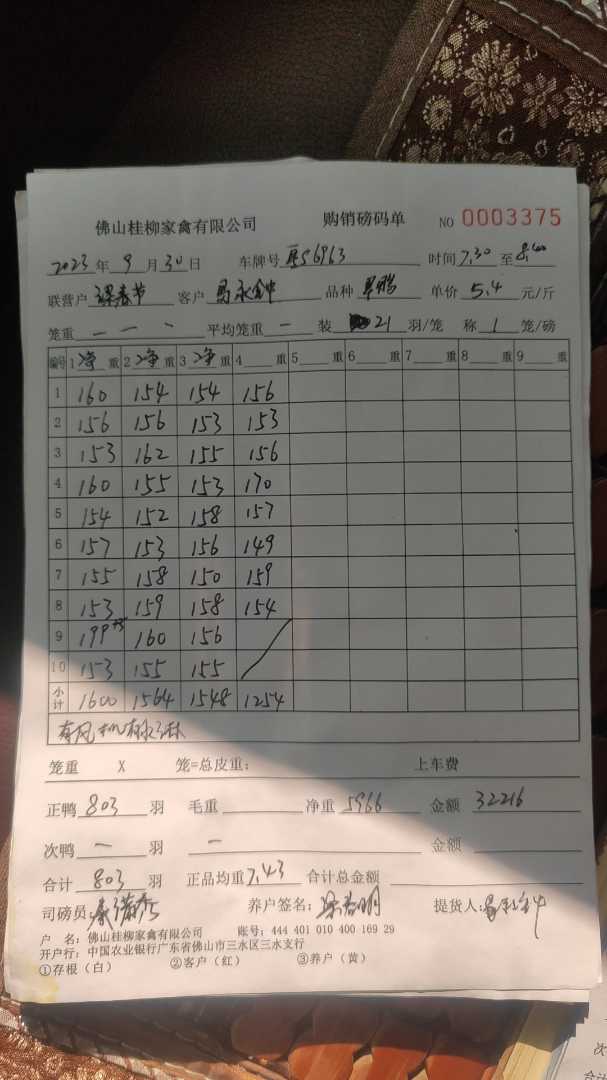 佛山桂柳家禽有限公司 购销磅码单 NO 0003375
2023年 9 月 30 日 车牌号 56963 时间 7.30 至 8.40
联营户 客户 马永钟 品种 单价 5.4 元/斤
笼重 一 一 、 平均笼重 一 装 21 羽/笼 称 1 笼/磅
编号 1 净 重 2 净 重 3 净 重 4 重 5 重 6 重 7 重 8 重 9 重
1 160 154 154 156
2 156 156 153 153
3 153 162 155 156
4 160 155 153 170
5 154 152 158 157
6 157 153 156 149
7 155 158 150 159
8 153 159 158 154
9 199 160 156
10 153 155 155
小计 1600 1564 1548 1254
有风
笼重 X 笼=总皮重： 上车费
正鸭 803 羽 毛重 净重 5966 金额 32216
次鸭 一 羽 一 金额
合计 803 羽 正品均重 7.43 合计总金额
司磅员： 养户签名： 提货人：
户 名：佛山桂柳家禽有限公司 账号：444 401 010 400 169 29
开户行：中国农业银行广东省佛山市三水区三水支行
①存根（白） ②客户（红） ③养户（黄）
次
合计